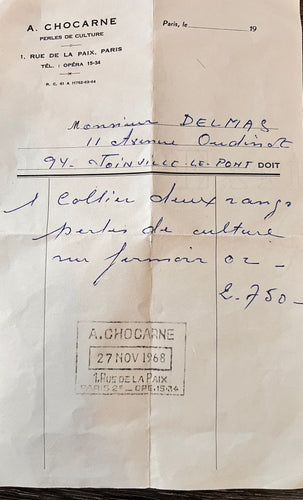 A. CHOCARNE
PERLES DE CULTURE
1, RUE DE LA PAIX, PARIS
TÉL. : OPÉRA 15-34
R. C. 61 A
Paris, le 19
Monsieur DELMAS
11 Avenue Oudinot
94- JOINVILLE-LE-PONT DOIT
1 Collier deux rangs
perles de culture
sur fermoir or -
2.750-
A. CHOCARNE
27 NOV 1968
1, RUE DE LA PAIX
PARIS 2e - OPE. 15-34